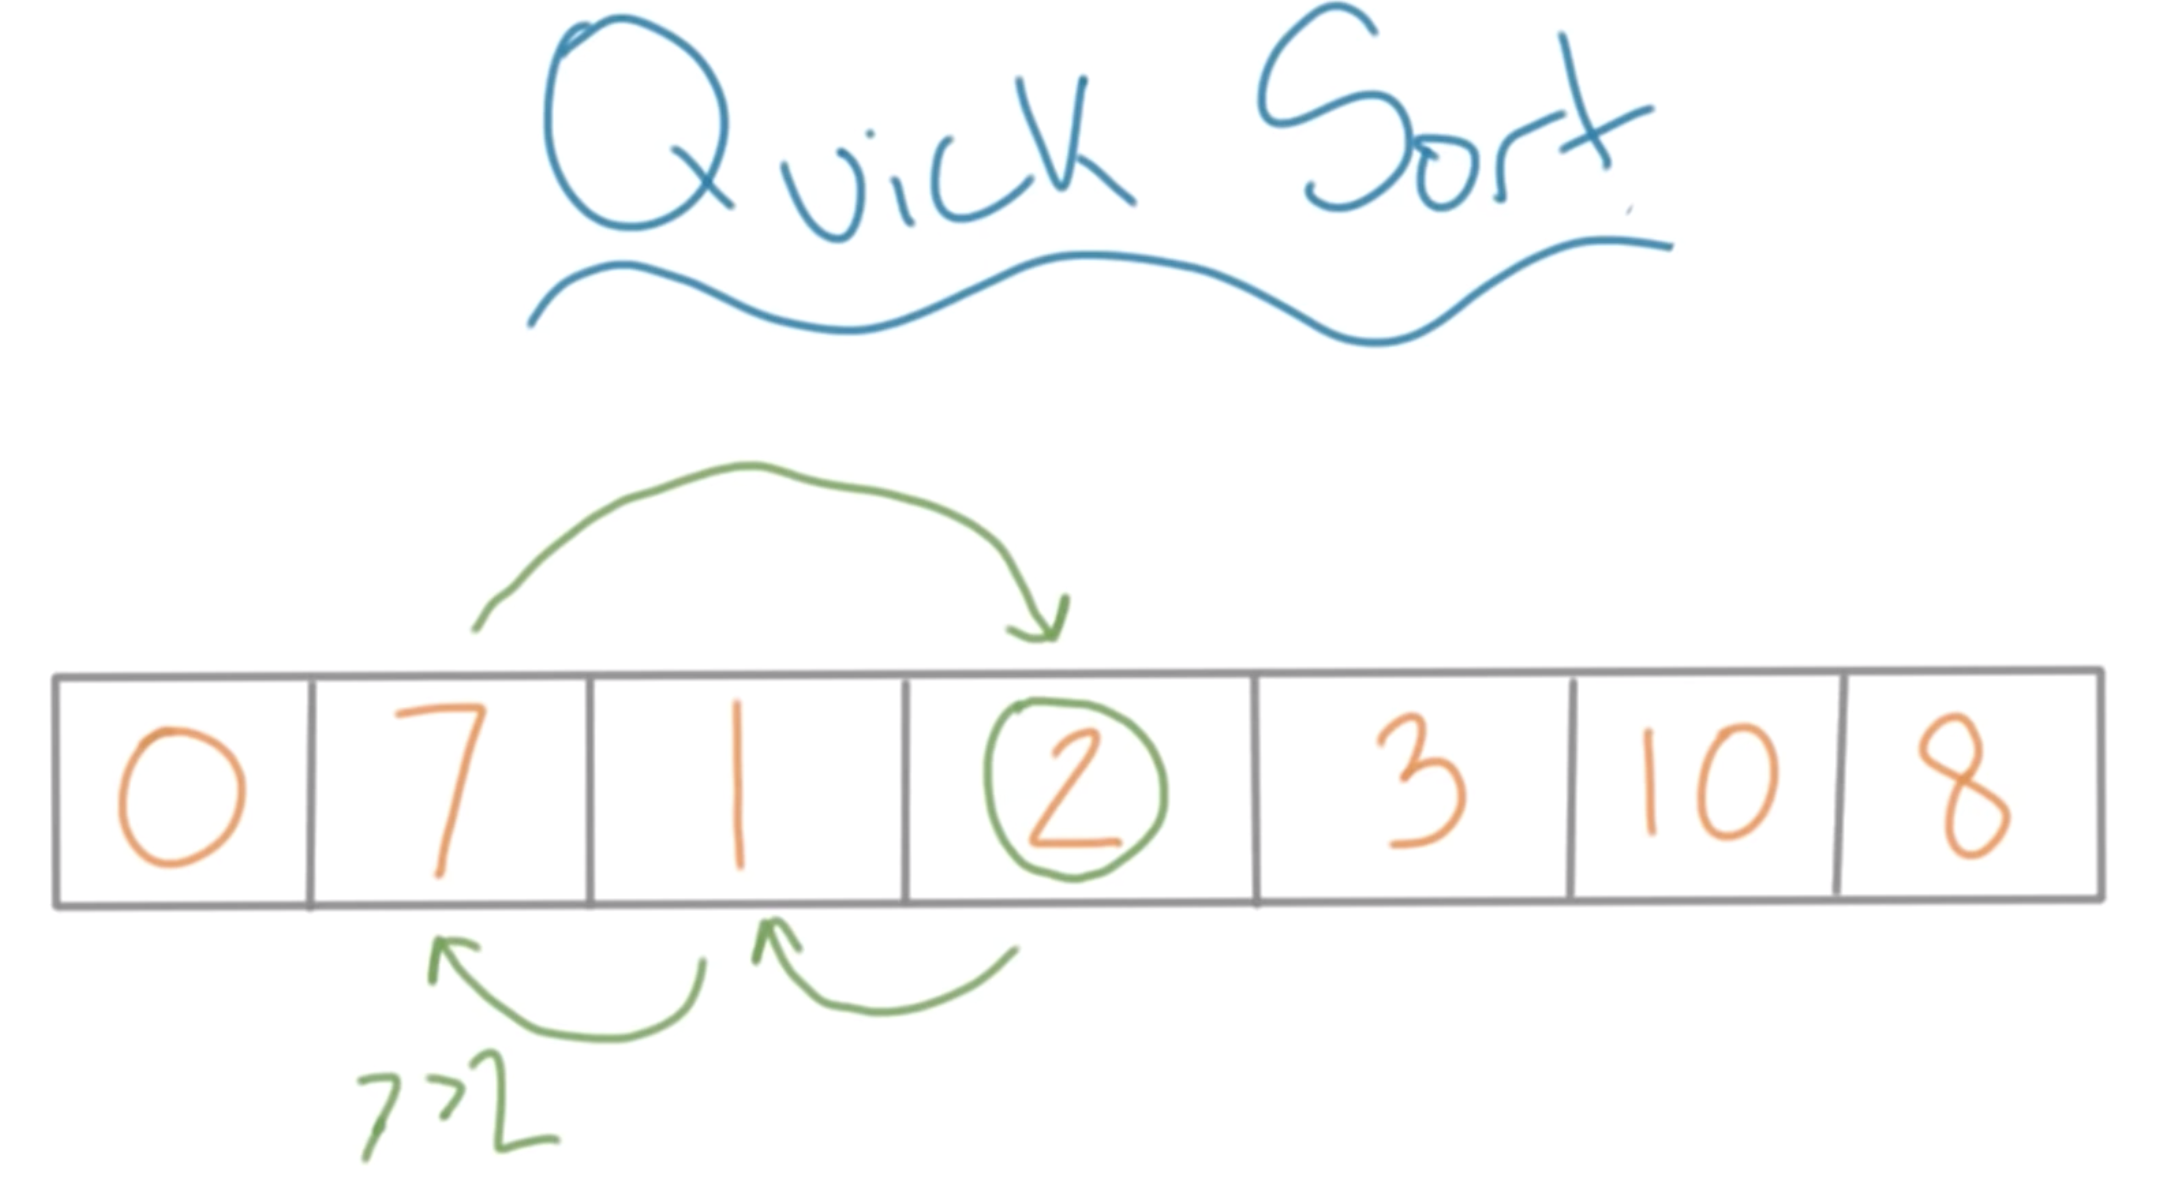 Quick Sort
0 7 1 2 3 10 8
7>2